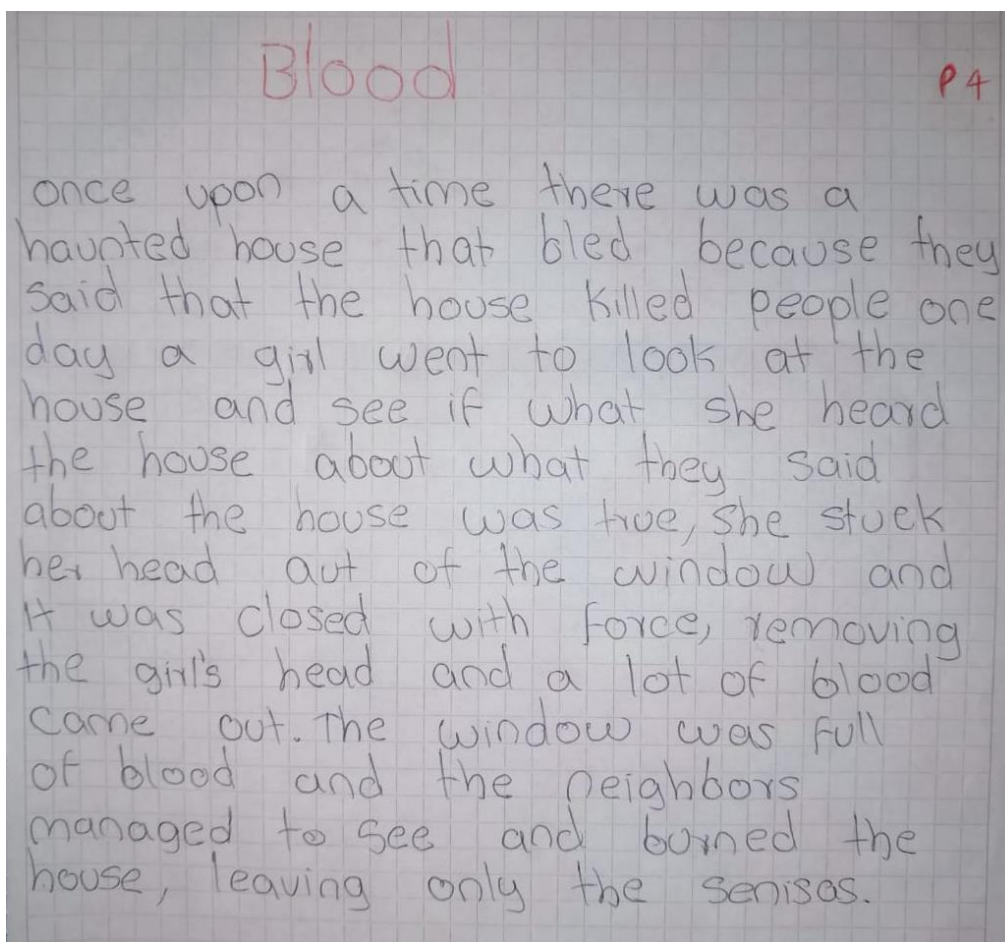 Blood
P4
once upon a time there was a
haunted house that bled because they
said that the house killed people one
day a girl went to look at the
house and see if what she heard
the house about what they said
about the house was true, she stuck
her head aut of the window and
It was closed with force, removing
the girl's head and a lot of blood
came out. The window was full
of blood and the neighbors
managed to see and burned the
house, leaving only the senisas.